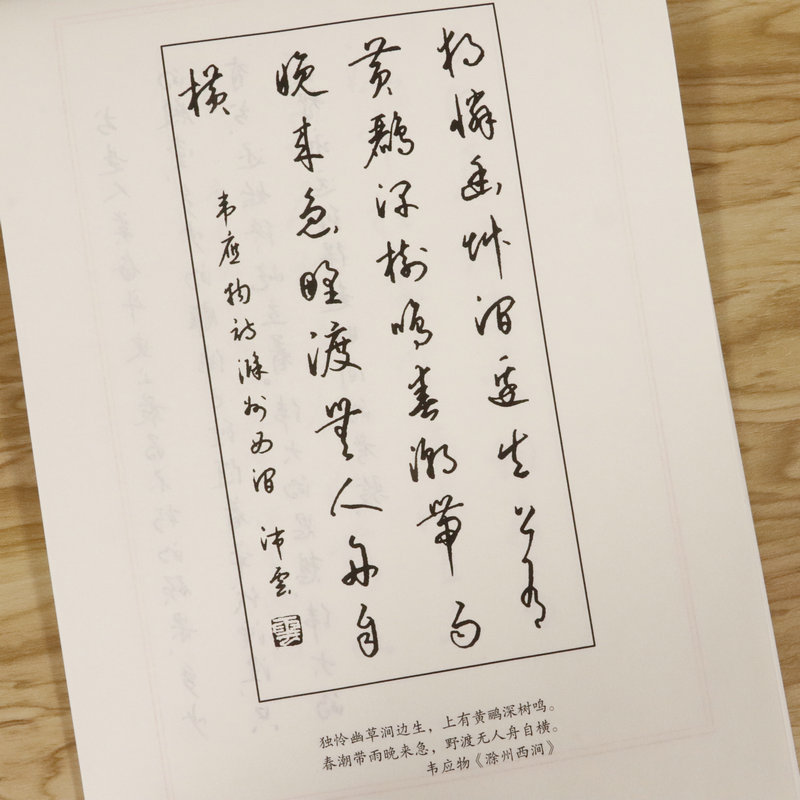 独憐幽艸涧边生上有
黄鸝深树鸣春潮带雨
晚来急野渡無人舟自
横
韦应物诗滁州西涧 沛雲
独怜幽草涧边生，上有黄鹂深树鸣。
春潮带雨晚来急，野渡无人舟自横。
韦应物《滁州西涧》